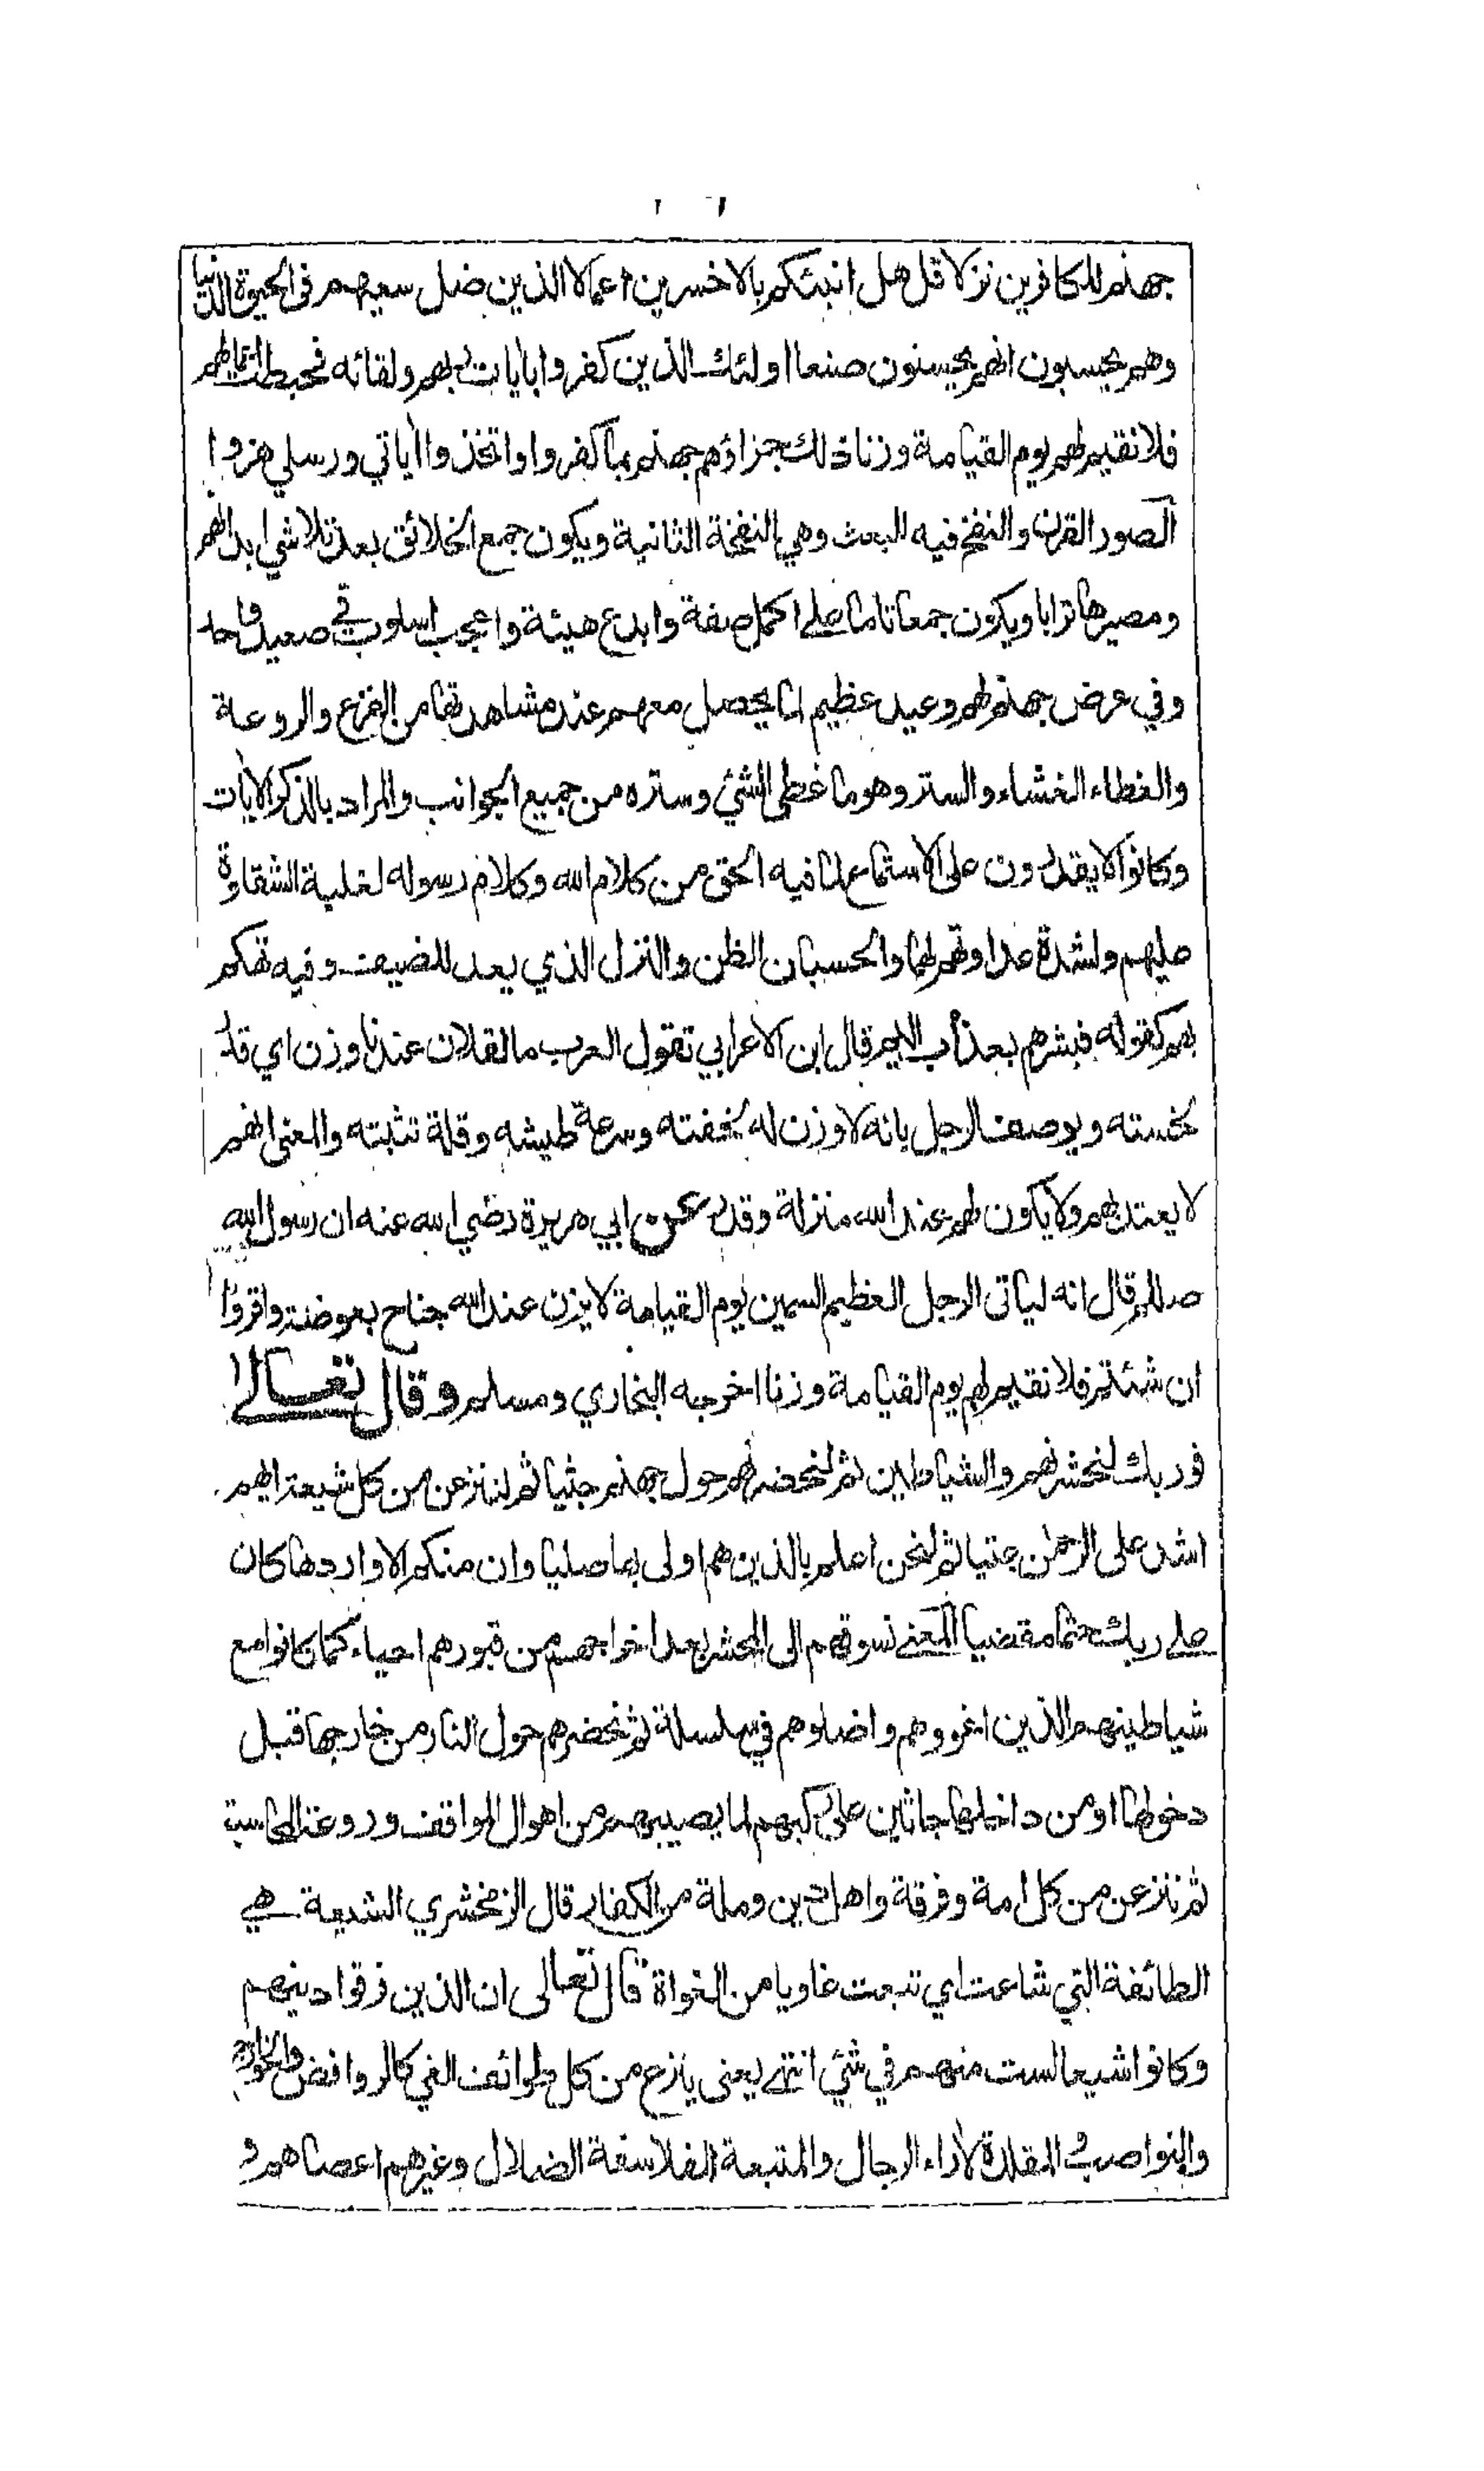 جهنم للكافرين نزلا قل هل انبئكم بالاخسرين اعمالا الذين ضل سعيهم في الحيوة الدنيا
وهم يحسبون انهم يحسنون صنعا اولئك الذين كفروا بايات ربهم ولقائه فحبطت اعمالهم
فلا نقيم لهم يوم القيامة وزنا ذلك جزاؤهم جهنم بما كفروا واتخذوا اياتي ورسلي هزوا
الصور القرن والنفخ فيه البعث وهي النفخة الثانية ويكون جمع الخلائق بعد تلاشي ابدانهم
ومصيرها ترابا ويكون جمعا تاما على اكمل صفة وابدع هيئة واعجب اسلوب في صعيد واحد
وفي عرض جهنم لهم وعيد عظيم لما يحصل معهم عند مشاهدتها من الفزع والروعة
والغطاء الغشاء والستر وهو ما غطى الشئ وستره من جميع الجوانب والمراد بالذكر الايات
وكانوا لا يقدرون على الاستماع لما فيه الحق من كلام الله وكلام رسوله لغلبة الشقاوة
عليهم ولشدة عداوتهم لهما والحسبان الظن والنزل الذي يعد للضيف وفيه تهكم
بهم كقوله فبشرهم بعذاب اليم قال ابن الاعرابي تقول العرب ما لفلان عندنا وزن اي قدر
لخسته ويوصف الرجل بانه لا وزن له لخفته وسرعة طيشه وقلة تثبته والمعنى انهم
لا يعتد بهم ولا يكون لهم عند الله منزلة وقدر عن ابي هريرة رضي الله عنه ان رسول الله
صللم قال انه لياتي الرجل العظيم السمين يوم القيامة لا يزن عند الله جناح بعوضة واقرؤا
ان شئتم فلا نقيم لهم يوم القيامة وزنا اخرجه البخاري ومسلم وقال تعالى
فوربك لنحشرنهم والشياطين ثم لنحضرنهم حول جهنم جثيا ثم لننزعن من كل شيعة ايهم
اشد على الرحمن عتيا ثم لنحن اعلم بالذين هم اولى بها صليا وان منكم الا واردها كان
على ربك حتما مقضيا المعنى نسوقهم الى المحشر بعد اخراجهم من قبورهم احياء كما كانوا مع
شياطينهم الذين اغووهم واضلوهم في سلسلة ثم نحضرهم حول النار من خارجها قبل
دخولها او من داخلها جاثين على ركبهم لما يصيبهم من اهوال المواقف وروعة المحاسبة
ثم ننزعن من كل امة وفرقة واهل دين وملة من الكفار قال الزمخشري الشيعة هي
الطائفة التي شاعت اي تبعت غاويا من الغواة قال تعالى ان الذين فرقوا دينهم
وكانوا شيعا لست منهم في شئ انتهى يعني ينزع من كل طوائف الغي كالروافض والخوارج
والنواصب و المقلدة لاراء الرجال والمتبعة الفلاسفة الضلال وغيرهم اعصاهم و